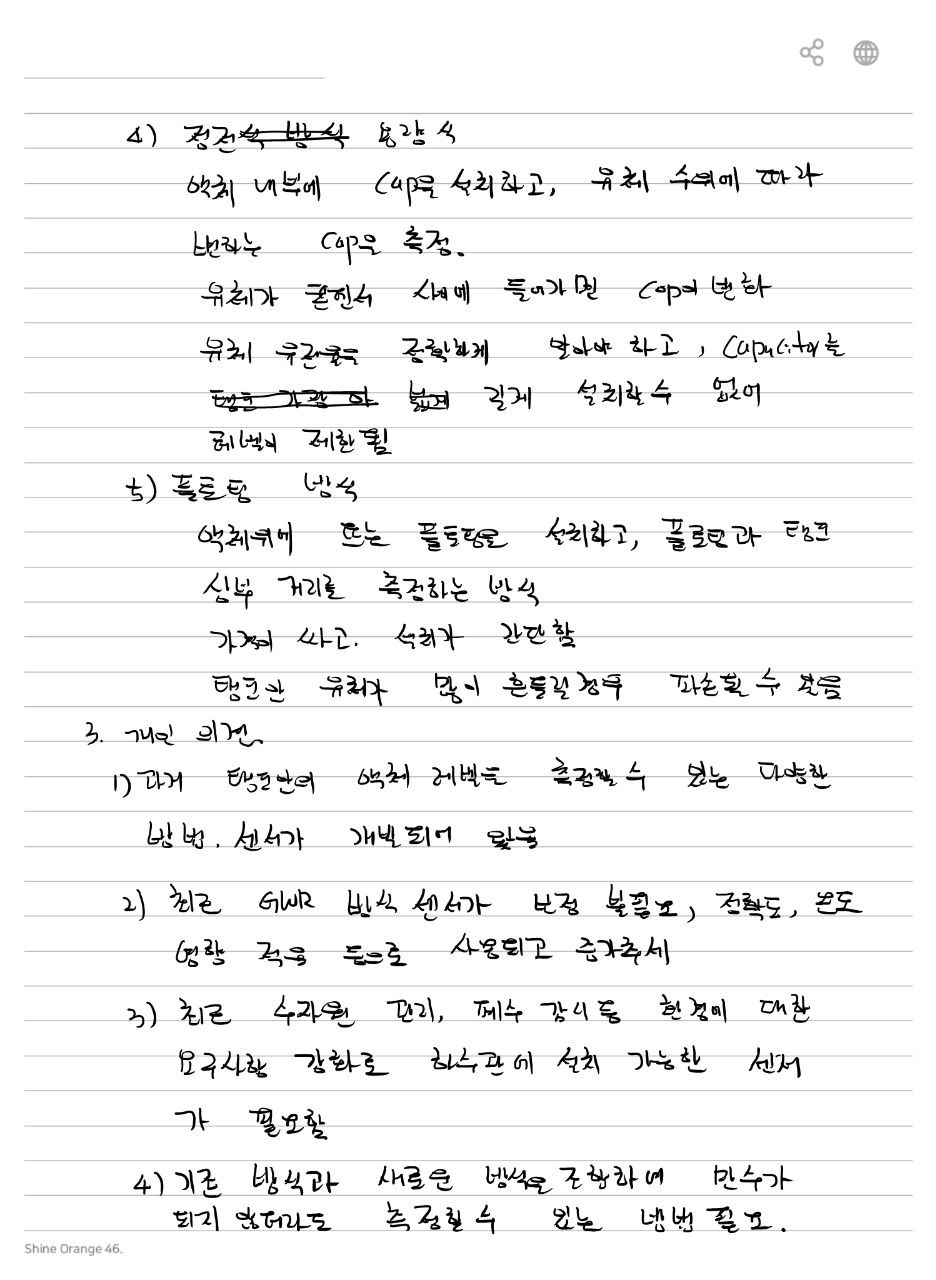 4) 정전 용량 식
액체 내부에 Cap을 설치하고, 유체 수위에 따라
변하는 Cap을 측정.
유체가 콘덴서 사이에 들어가면 Cap이 변화
유체 유전율을 정확하게 알아야 하고, Capacitor를
길게 설치할 수 없어
레벨이 제한됨
5) 플로팅 방식
액체위에 뜨는 플로팅을 설치하고, 플로팅과 탱크
상부 거리를 측정하는 방식
가격이 싸고. 설치가 간단함
탱크안 유체가 많이 흔들릴경우 파손될 수 있음
3. 개인 의견.
1) 과거 탱크안의 액체 레벨을 측정할 수 있는 다양한
방법, 센서가 개발되어 왔음
2) 최근 GWR 방식 센서가 보정 불필요, 정확도, 온도
영향 적음 등으로 사용되고 증가추세
3) 최근 수자원 관리, 폐수 감시 등 환경에 대한
요구사항 강화로 하수관에 설치 가능한 센서
가 필요함
4) 기존 방식과 새로운 방식을 조합하여 만수가
되지 않더라도 측정할 수 있는 방법 필요.
Shine Orange 46.